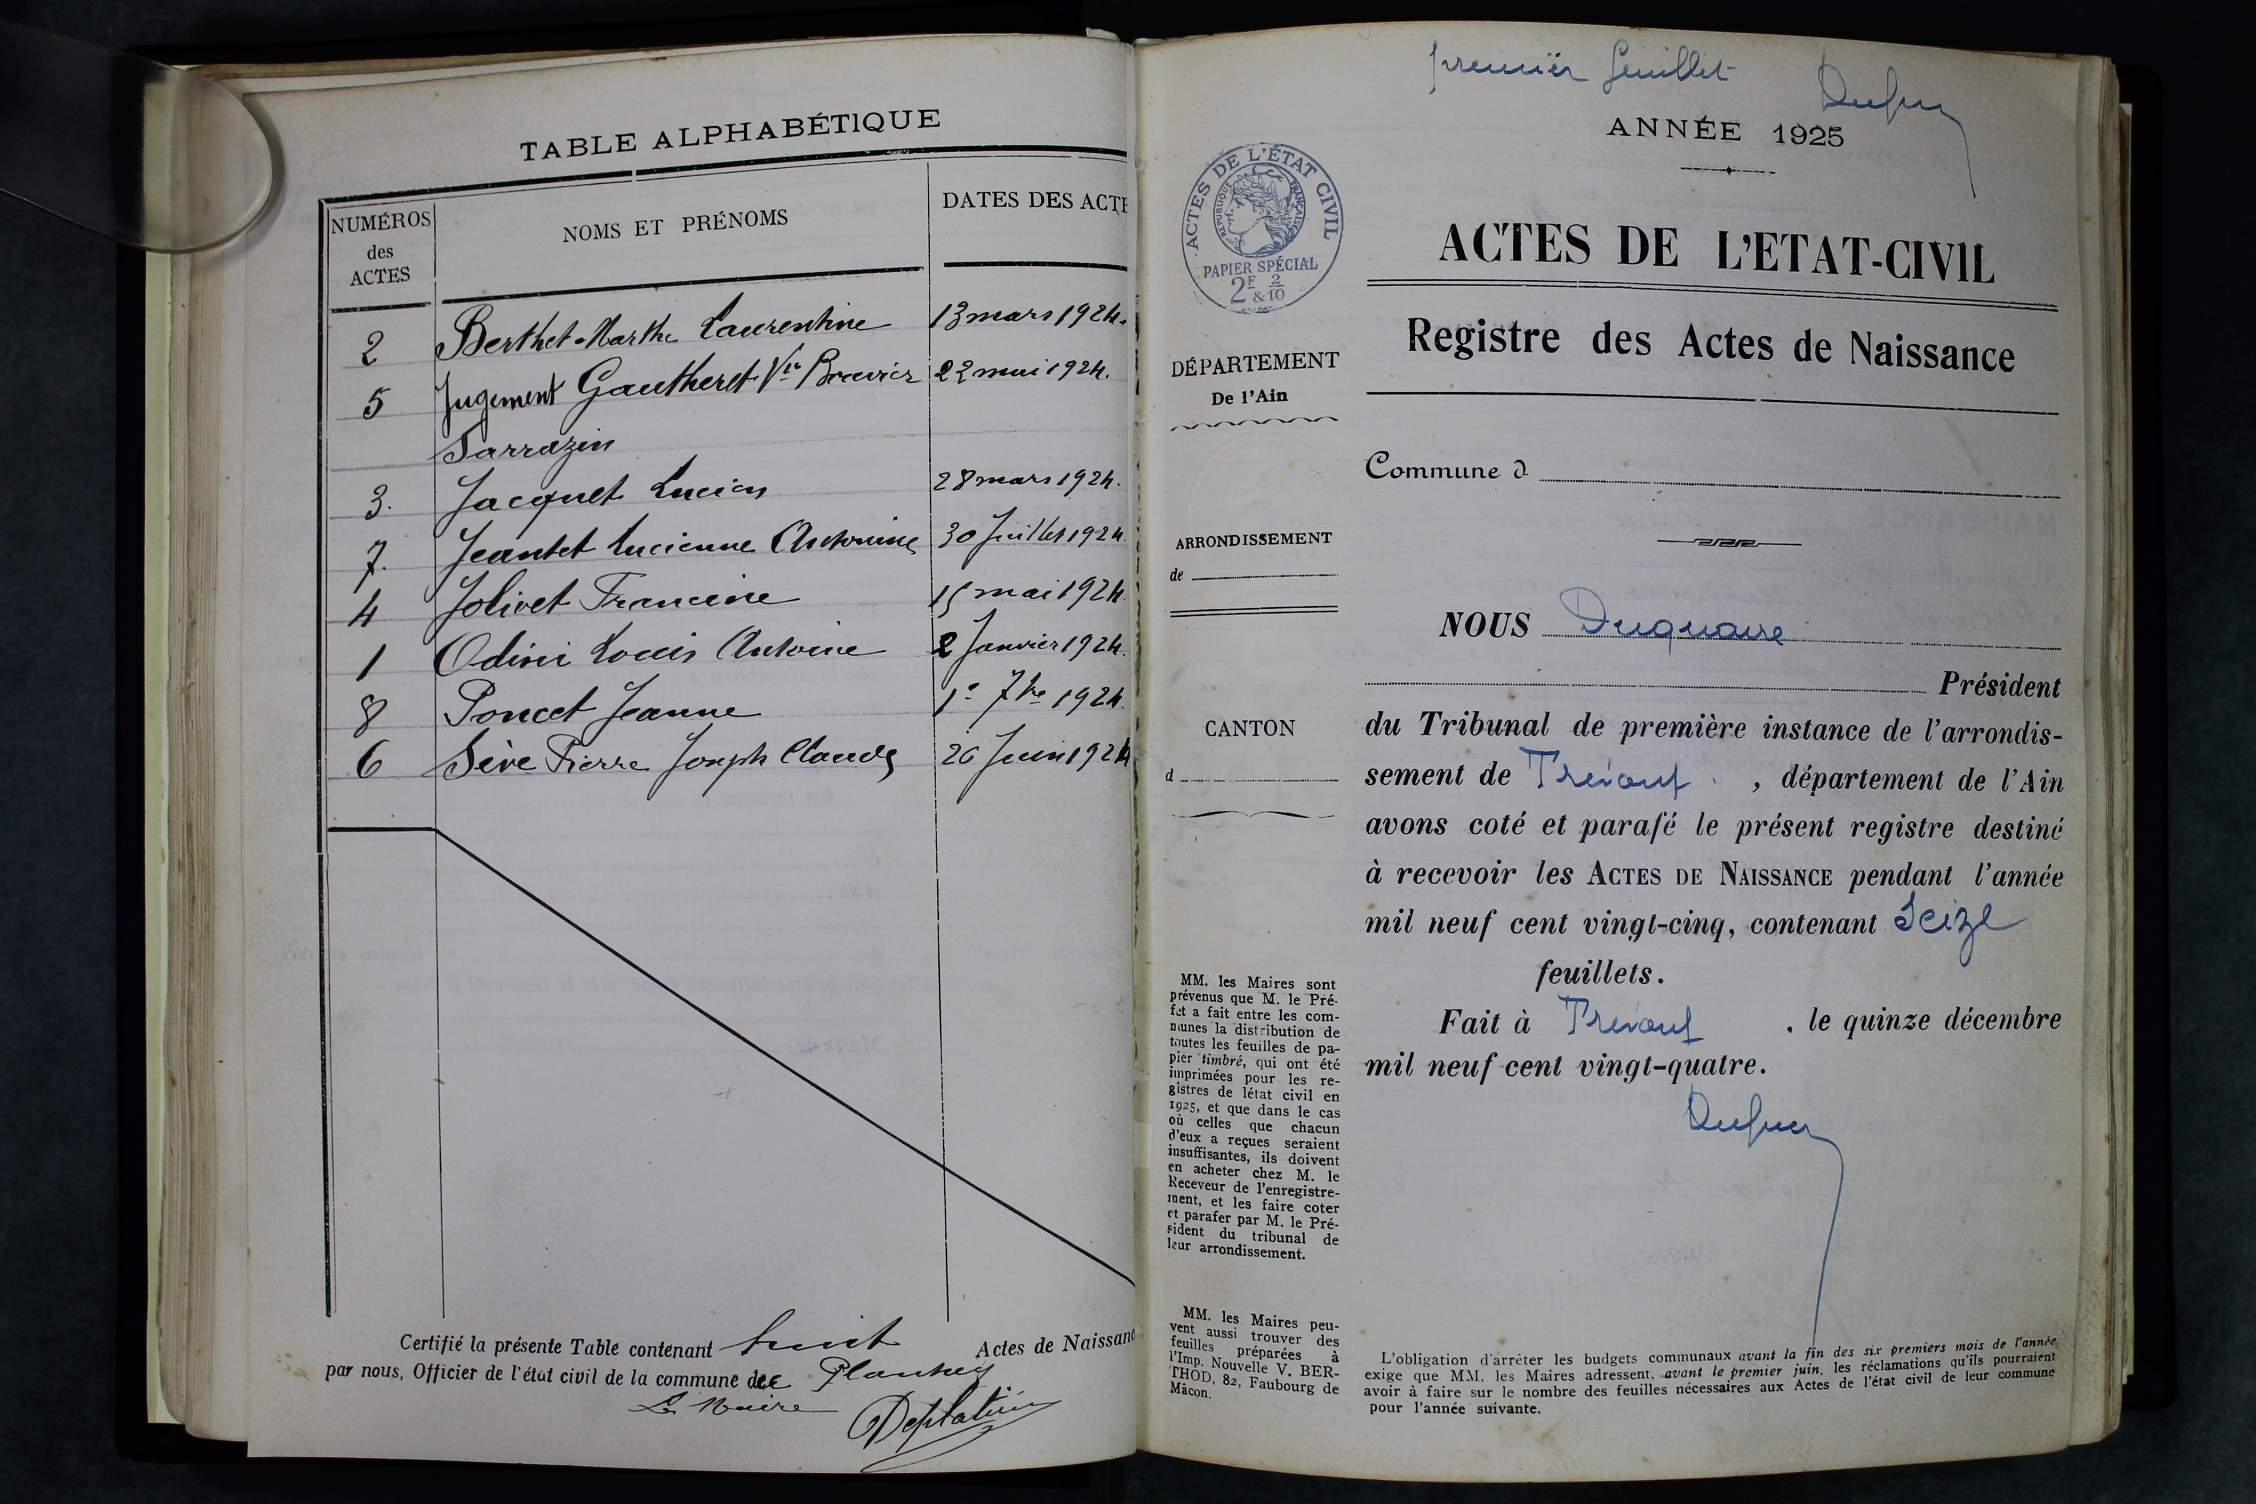 TABLE ALPHABÉTIQUE
NUMÉROS des ACTES
NOMS ET PRÉNOMS
DATES DES ACTE
2 Berthet Marthe Laurentine 13 mars 1924.
5 Jugement Gautheret Vve Bouvier 22 mai 1924.
Sarrazin
3. Jacquet Lucien 28 mars 1924.
7. Jeantet Lucienne Antonine 30 Juillet 1924
4 Jolivet Francine 15 mai 1924.
1 Odini Louis Antoine 2 Janvier 1924.
8 Poncet Jeanne 1er 7bre 1924.
6 Sève Pierre Joseph Claude 26 Juin 1924
Certifié la présente Table contenant huit Actes de Naissanc
par nous, Officier de l'état civil de la commune de Plantay
Le Maire
premier feuillet
ANNÉE 1925
ACTES DE L'ÉTAT CIVIL
RÉPUBLIQUE FRANÇAISE
PAPIER SPÉCIAL
2F 2
& 10
ACTES DE L'ETAT-CIVIL
Registre des Actes de Naissance
DÉPARTEMENT
De l'Ain
ARRONDISSEMENT
de
CANTON
d
MM. les Maires sont
prévenus que M. le Pré-
fet a fait entre les com-
munes la distribution de
toutes les feuilles de pa-
pier timbré, qui ont été
imprimées pour les re-
gistres de létat civil en
1925, et que dans le cas
où celles que chacun
d'eux a reçues seraient
insuffisantes, ils doivent
en acheter chez M. le
Receveur de l'enregistre-
ment, et les faire coter
et parafer par M. le Pré-
sident du tribunal de
leur arrondissement.
MM. les Maires peu-
vent aussi trouver des
feuilles préparées à
l'Imp. Nouvelle V. BER-
THOD, 82, Faubourg de
Mâcon.
Commune d
NOUS Duquaire
Président
du Tribunal de première instance de l'arrondis-
sement de Trévoux , département de l'Ain
avons coté et parafé le présent registre destiné
à recevoir les ACTES DE NAISSANCE pendant l'année
mil neuf cent vingt-cinq, contenant Seize
feuillets.
Fait à Trévoux , le quinze décembre
mil neuf cent vingt-quatre.
L'obligation d'arrêter les budgets communaux avant la fin des six premiers mois de l'année
exige que MM. les Maires adressent, avant le premier juin, les réclamations qu'ils pourraient
avoir à faire sur le nombre des feuilles nécessaires aux Actes de l'état civil de leur commune
pour l'année suivante.